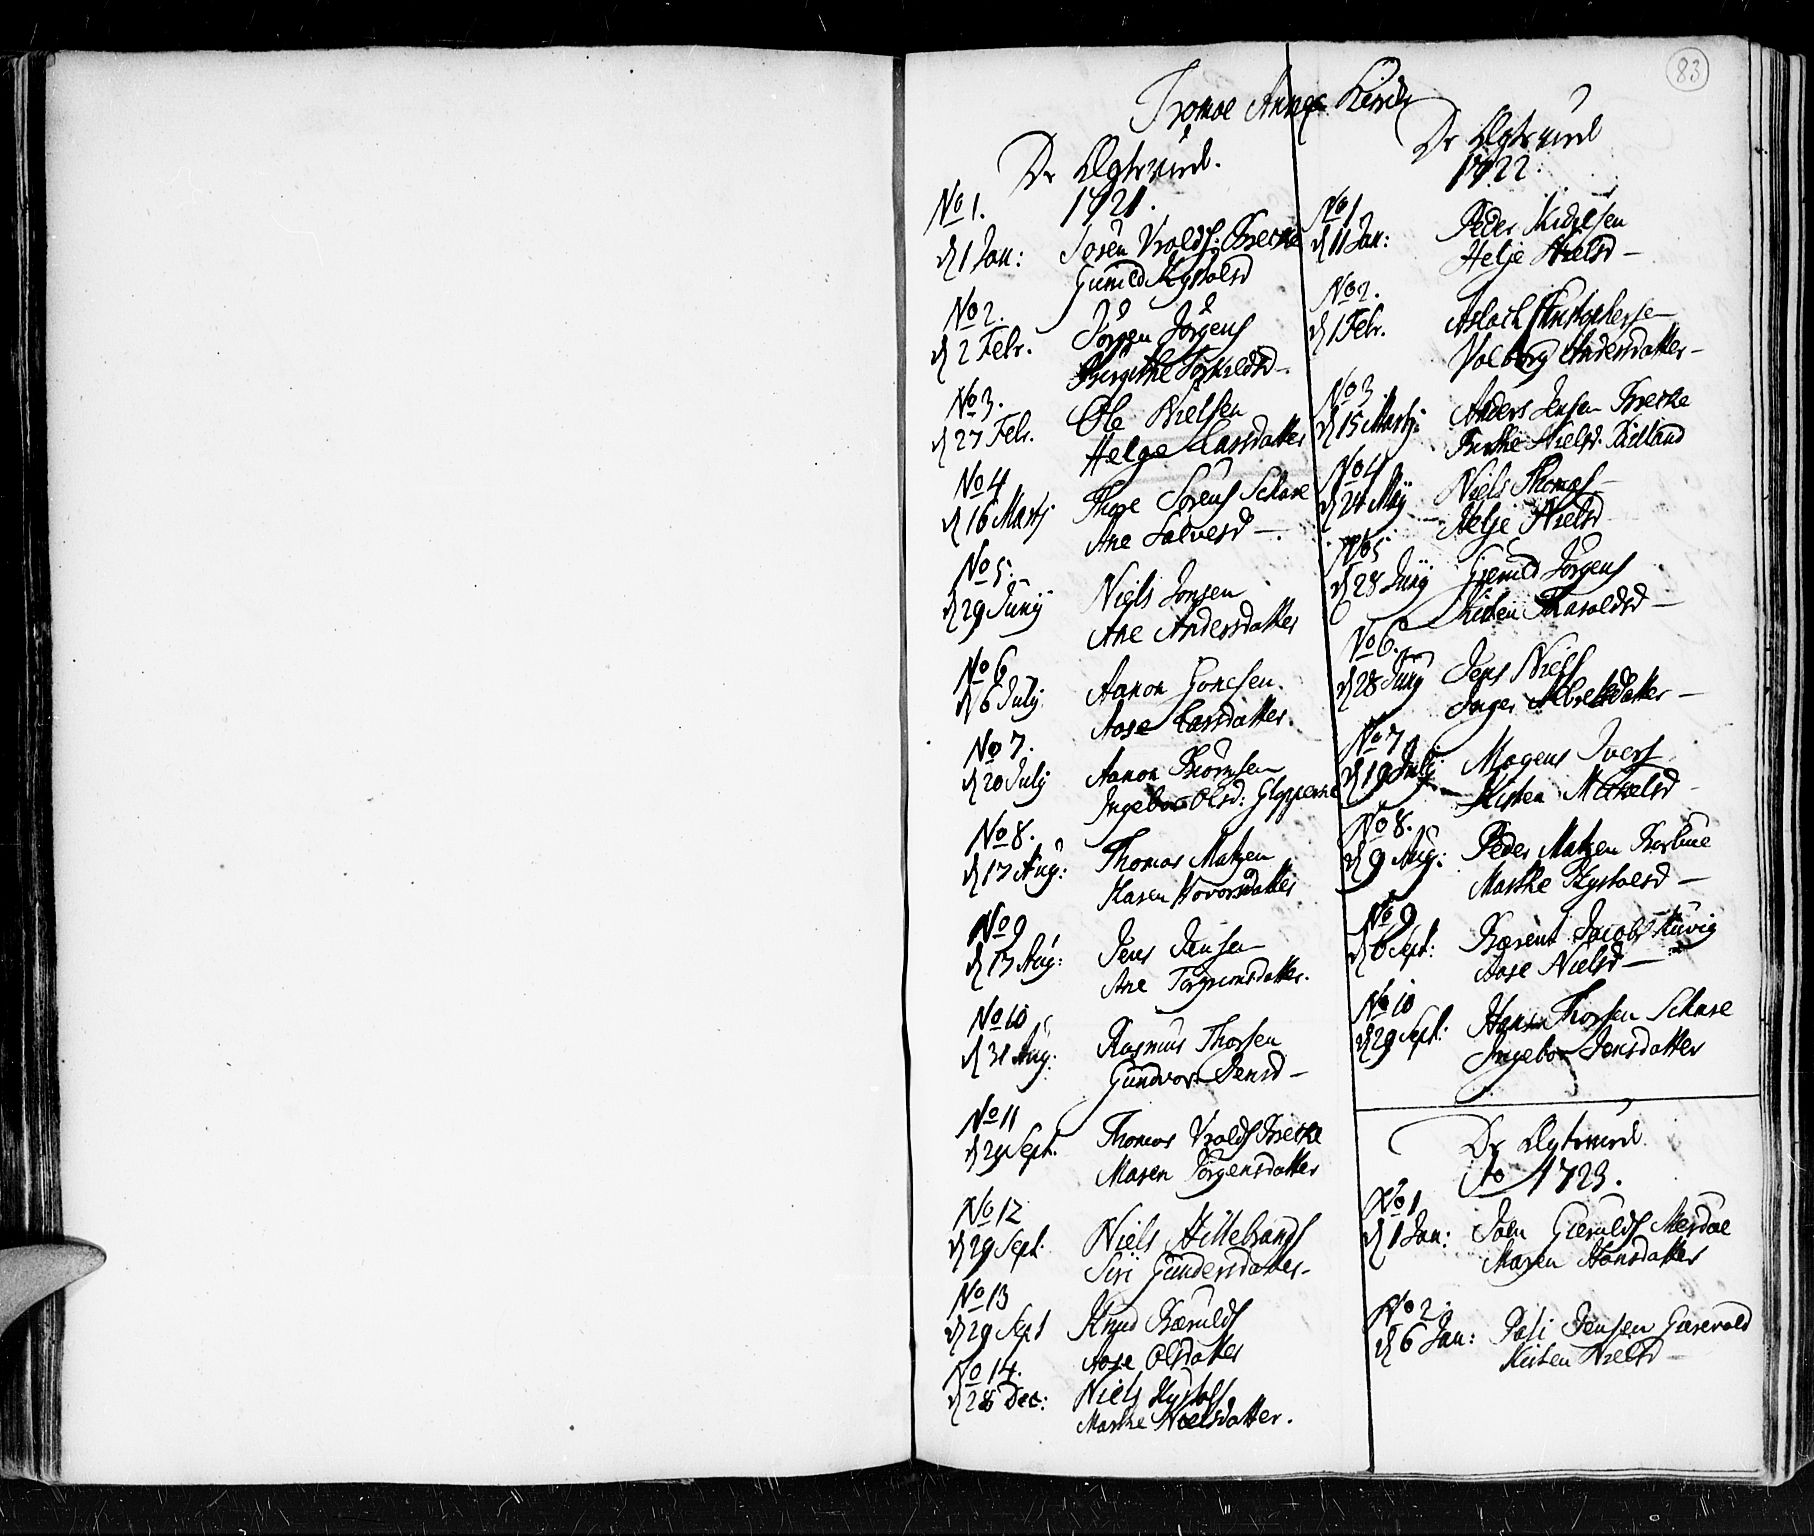 83
Tromøe Annex Kirche
De Ægtewied.
1721.
No 1.
d 1 Jan: Soren Vrolds: Brecke
Gunild Kystolsd
No 2.
d 2 Febr. Jörgen Jörgens
Birgithe Torkildsd -
No 3.
d 27 Febr. Ole Nielsen
Helge Larsdatter
No 4
d 16 Martj Thore Sørens Schare
Ane Salvesd -.
No 5.
d 29 Junij Niels Jonsen
Ane Andersdatter
No 6
d 6 July Aanon Goncsen.
Aase Larsdatter.
No 7.
d 20 July Aanon Biörnsen
Ingebor Olsd: Glopperne
No 8.
d 17 Aug: Thomas Matzen
Karen Hovorsdatter
No 9
d 17 Aug: Jens Jensen
Ane Torgrimsdatter.
No 10
d 31 Aug: Rasmus Thorsen
Gundvor Jensd -
No 11
d 29 Sept. Thomas Vrolds Brecke
Maren Jörgensdatter
No 12
d 29 Sept: Niels Hillebrands
Siri Gundersdatter -
No 13
d 29 Sept Knud Bærulds
Aase Olsdatter
No 14.
d 28 Dec: Niels Kystols
Marthe Nielsdatter.
De Ægtewied
1722.
No 1
d 11 Jan: Peder Michelsen
Helje Nielsd -
No 2.
d 1 Febr. Aslach Christophersen
Volborg Andersdatter -
No 3
d 15 Martj: Anders Jensen Brecke
Nielsd:
No 4
d 24 Maij Niels Thomas -
Helje Nielsd
No 5
d 28 Junij Gieruld Jörgens
Kirsten Tharaldsd -
No 6.
d 28 Junij Jens Niels
Inger Albretsdatter -
No 7
d 19 July Mogens Ivers
Kirsten Michelsd -
No 8.
d 9 Aug: Peder Matzen Borbue
Marthe Kystolsd -
No 9
d 6 Sept: Bærent Jacobs Kuvig
Aase Nielsd -
No 10
d 29 Sept: Hans Thorsen Schare
Ingebor Jensdatter
De Ægtewied
Ao 1723.
No 1
d 1 Jan: Joen Gierulds Merdöe
Maren Hansdatter
No 2.
d 6 Jan: Jensen Giærevold
Kirsten Nielsd -